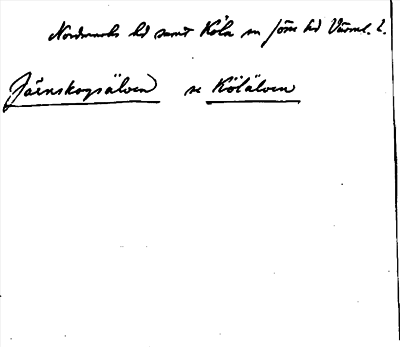 Nordmarks hd samt Köla sn Jösse hd Värml. l.
Järnskogsälven se Kölälven